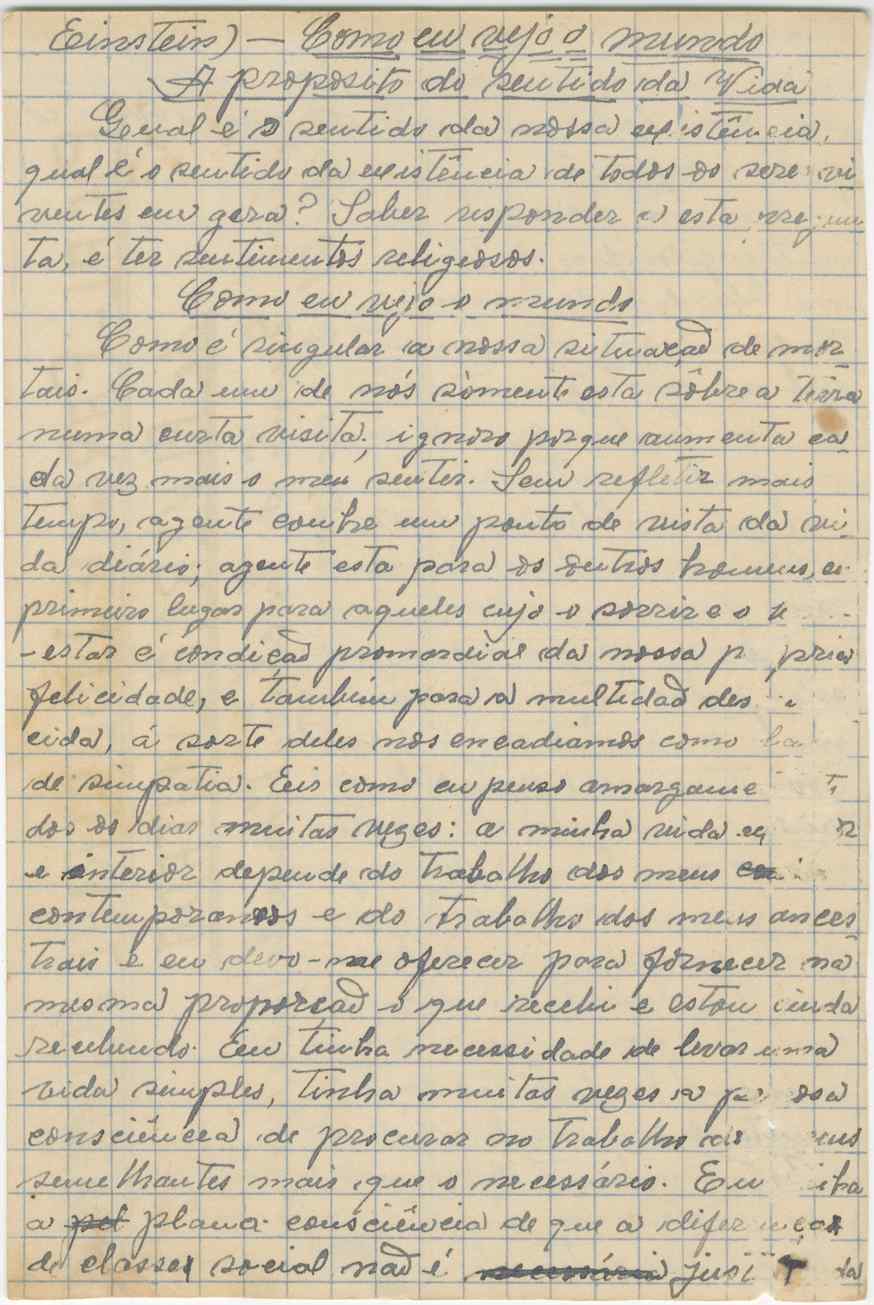 Einstein) — Como eu vejo o mundo
A proposito do sentido da Vida
Qual é o sentido da nossa existência,
qual é o sentido da existência de todos os sere vi
ventes em gera? Saber responder a esta pregun
ta, é ter sentimentos religeosos.
Como eu vejo o mundo
Como é singular a nossa situaçaõ de mor
tais. Cada um de nós sòmente esta sôbre a terra
numa curta visita; ignoro porque aumenta ca
da vez mais o meu sentir. Sem refletir mais
tempo, agente conhe um ponto de vista da vi
da diário; agente esta para os outros homens, em
primeiro lugar para aqueles cujo o sorrir e o
-estar é condiçaõ promordial da nossa p pria
felicidade, e também para a multidaõ des
cida, á sorte deles nos encadiamos como
de simpatia. Eis como eu penso amargame t
dos os dias muitas vezes: a minha vida
e interior depende do trabalho dos meus
contemporanos e do trabalho dos meus ances
trais e eu devo-me oferecer para fornecer na
mesma proporçaõ o que recebi e estou ainda
recebendo. Eu tinha necessidade de levar uma
vida simples, tinha muitas vezes a p osa
consciência de procurar no trabalho de eus
semelhantes mais que o necessário. Eu inha
a plana consciência de que a diferença
de classes social naõ é ~~necessária~~ just da